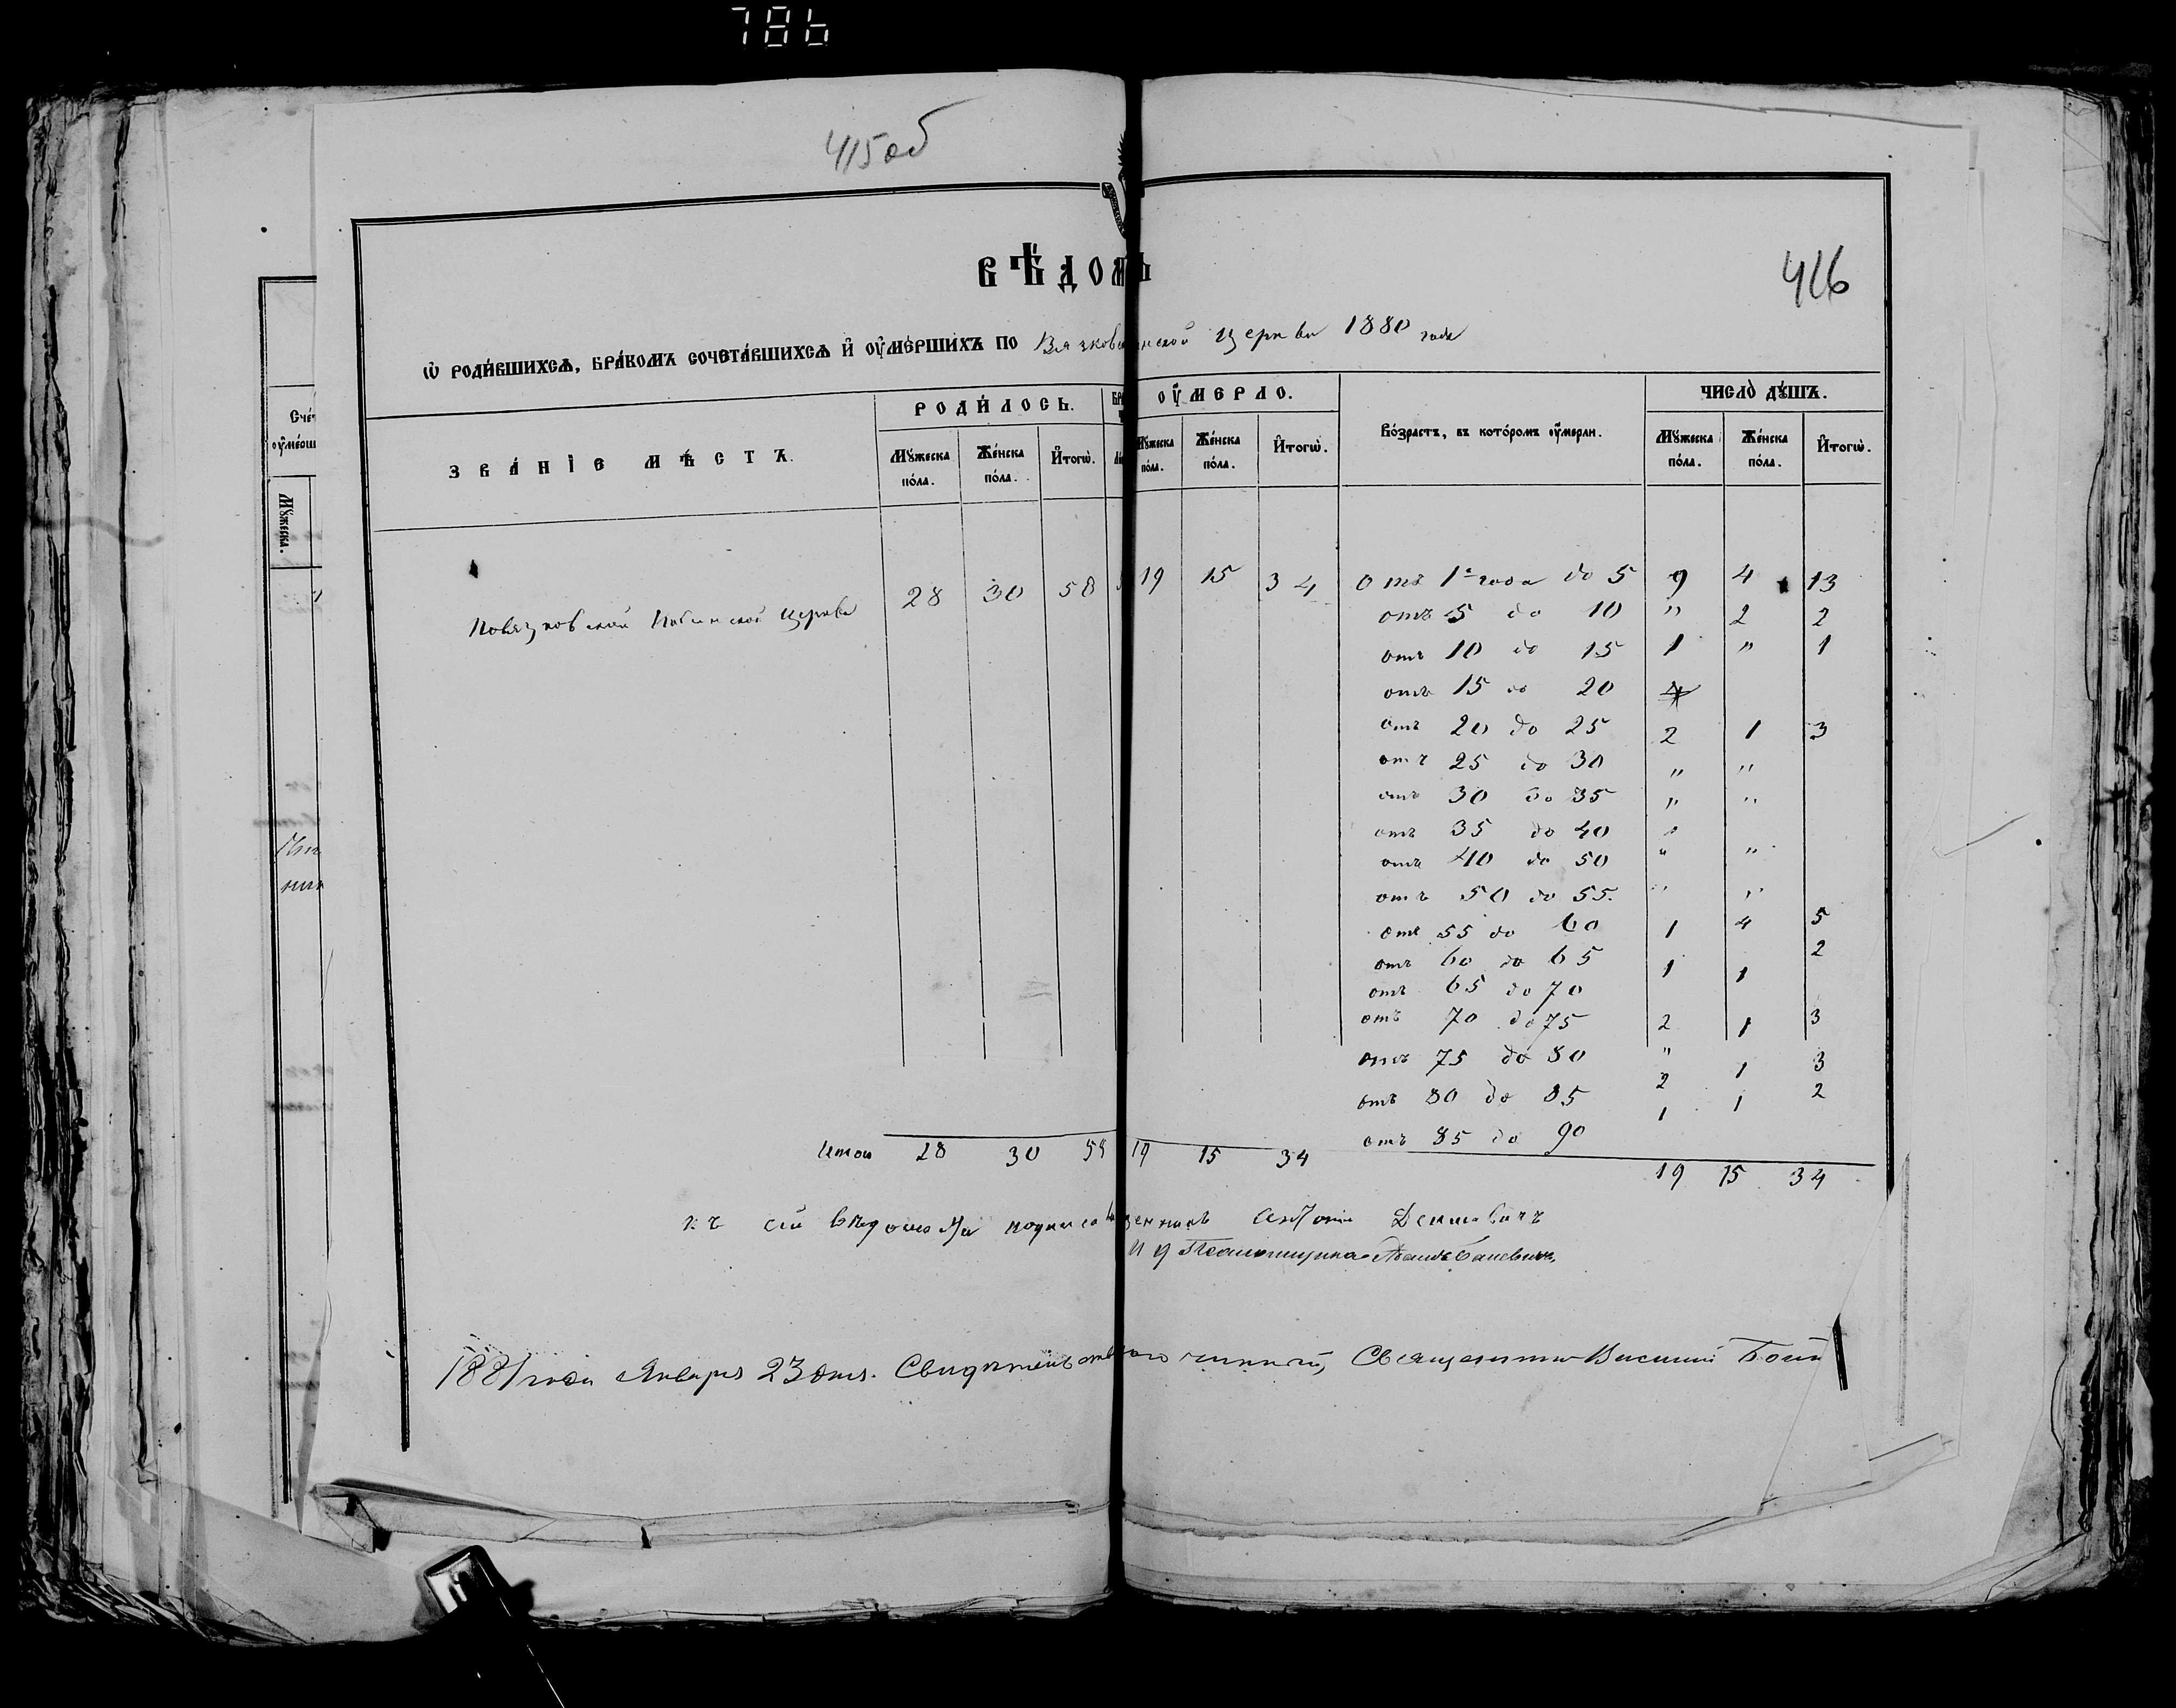 786
415 об
416
ВѢДОМ
Ѡ РОДИ́ВШИХСѦ, БРА́КОМЪ СОЧЕТА́ВШИХСѦ И҆ ОУ҆МЕ́РШИХЪ ПО церкви 1880 года
Сче́
оу҆ме́рш
Мꙋ́жеска.
ЗВА́НІЕ МѢ́СТЪ.
РОДИ́ЛОСЬ.
Мꙋ́жеска по́ла.
Же́нска по́ла.
И҆тогѡ̀.
ОУ҆́МЕРЛО.
Мꙋ́жеска по́ла.
Же́нска по́ла.
И҆тогѡ̀.
Во́зрастъ, въ кото́ромъ оу҆́мерли.
ЧИСЛО̀ ДꙊ́ШЪ.
Мꙋ́жеска по́ла.
Же́нска по́ла.
И҆тогѡ̀.
церкви 28 30 58 19 15 34
Отъ 1го года до 5 9 4 13
отъ 5 до 10 " 2 2
отъ 10 до 15 1 " 1
отъ 15 до 20
отъ 20 до 25 2 1 3
отъ 25 до 30 " "
отъ 30 до 35 " "
отъ 35 до 40 "
отъ 40 до 50 " "
отъ 50 до 55. " "
отъ 55 до 60 1 4 5
отъ 60 до 65 1 1 2
отъ 65 до 70
отъ 70 до 75 2 1 3
отъ 75 до 80 "
2 1 3
отъ 80 до 85
1 1 2
отъ 85 до 90
Итого 28 30 58 19 15 34
19 15 34
къ сей вѣдомости Антоній
И д Псаломщика
1881 года Января 23 дня. Священникъ Василий